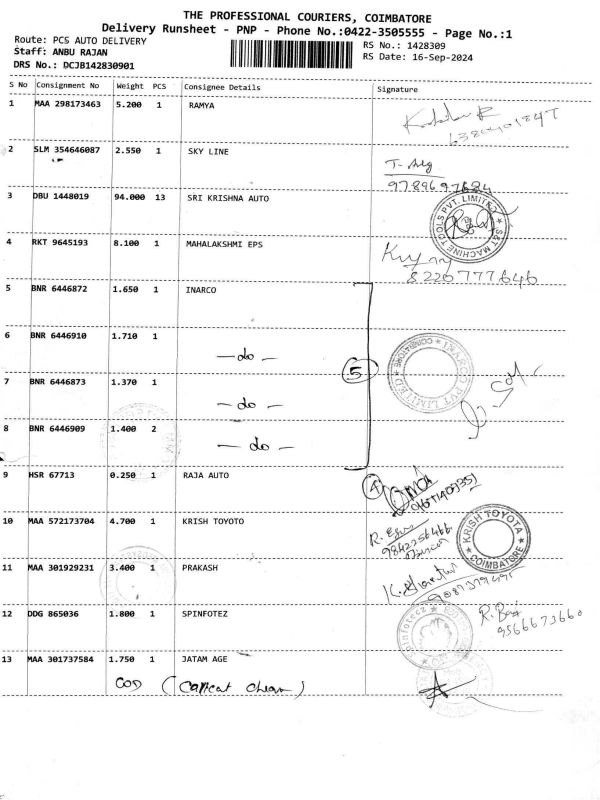 THE PROFESSIONAL COURIERS, COIMBATORE
Delivery Runsheet - PNP - Phone No.:0422-3505555 - Page No.:1
Route: PCS AUTO DELIVERY
RS No.: 1428309
Staff: ANBU RAJAN
RS Date: 16-Sep-2024
DRS No.: DCJB142830901
S No Consignment No Weight PCS Consignee Details Signature
1 MAA 298173463 5.200 1 RAMYA
2 SLM 354646087 2.550 1 SKY LINE
3 DBU 1448019 94.000 13 SRI KRISHNA AUTO
S&T MACHINE TOOLS PVT. LIMITED
4 RKT 9645193 8.100 1 MAHALAKSHMI EPS
8220777646
5 BNR 6446872 1.650 1 INARCO
6 BNR 6446910 1.710 1
- do -
5
INARCO PVT LIMITED COIMBATORE
7 BNR 6446873 1.370 1
- do -
8 BNR 6446909 1.400 2
- do -
9 HSR 67713 0.250 1 RAJA AUTO
10 MAA 572173704 4.700 1 KRISH TOYOTO
KRISH TOYOTA COIMBATORE
11 MAA 301929231 3.400 1 PRAKASH
12 DDG 865036 1.800 1 SPINFOTEZ
9566673660
13 MAA 301737584 1.750 1 JATAM AGE
COD